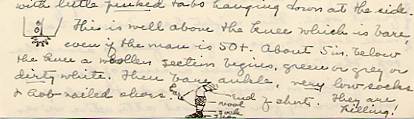 with little pinked tabs hanging down at the side.
This is well above the knee which is bare,
even if the man is 50+. About 5 in. below
the knee a woolen section begins, green or grey or
dirty white. Then bare ankle, very low socks
& hob-nailed shoes.
end of shorts. They are
wool
sock
killing!